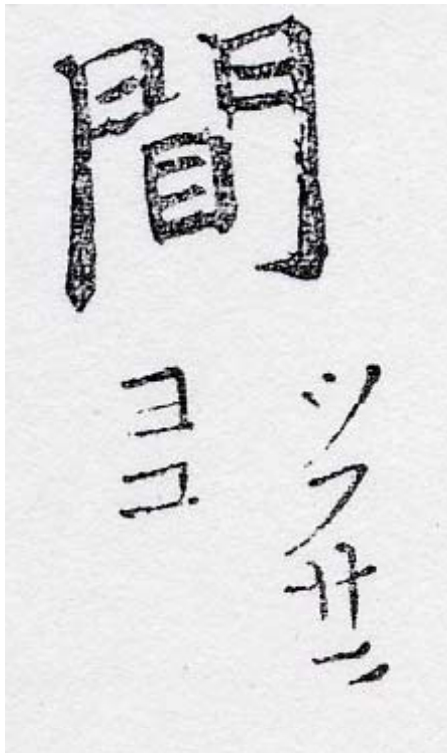 間
ツフサニ
ヨコ